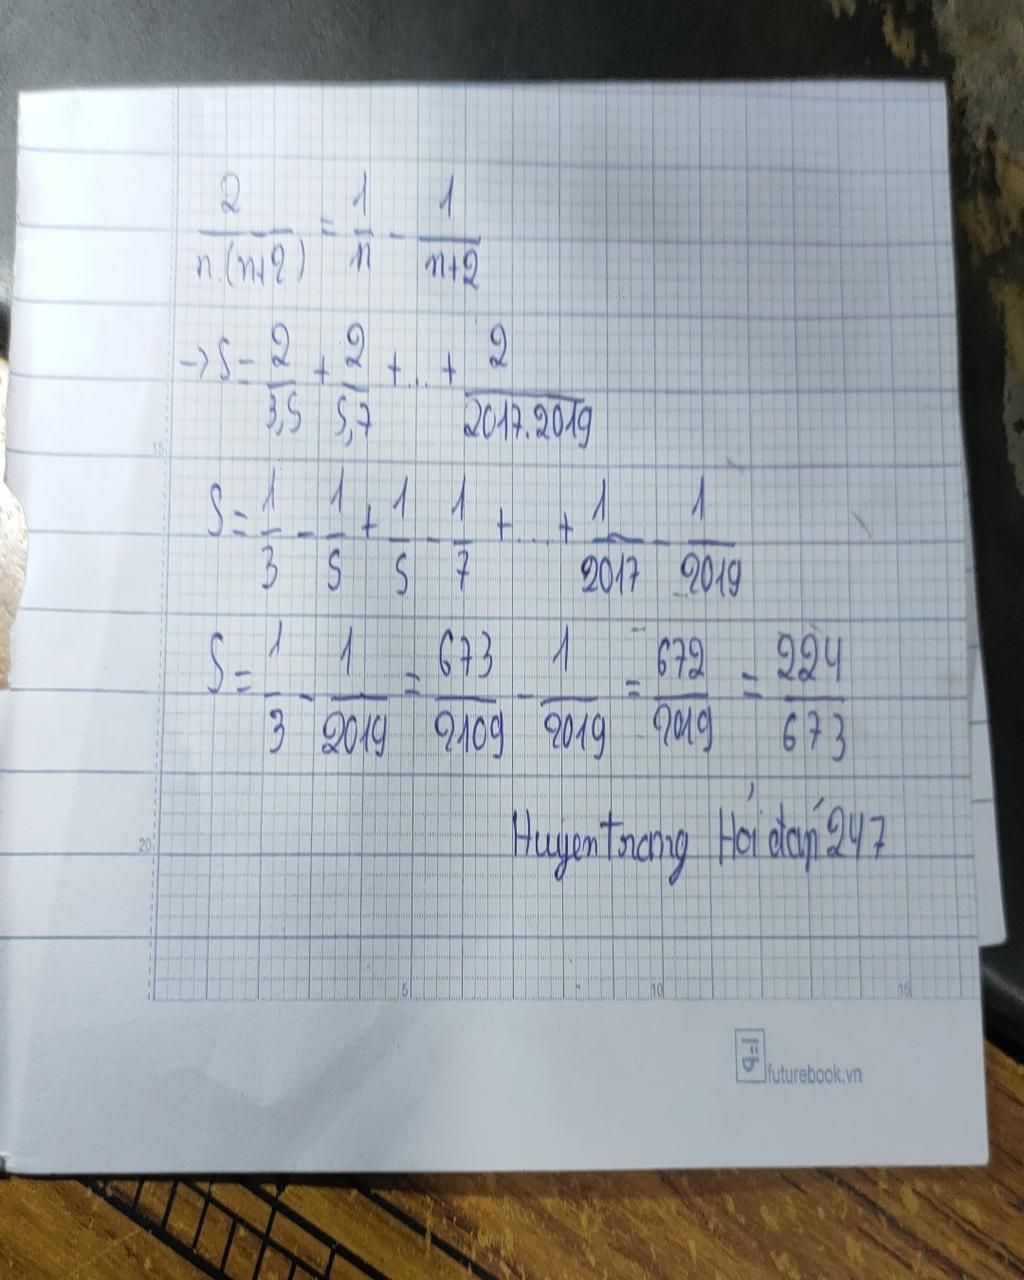 2/n.(n+2) = 1/n - 1/n+2
→ S = 2/3,5 + 2/5,7 + ... + 2/2017.2019
15
S = 1/3 - 1/5 + 1/5 - 1/7 + ... + 1/2017 - 1/2019
S = 1/3 - 1/2019 = 673/2109 - 1/2019 = 672/2019 = 224/673
Huyentrang Hỏi đáp 247
20
5 10 15
futurebook.vn